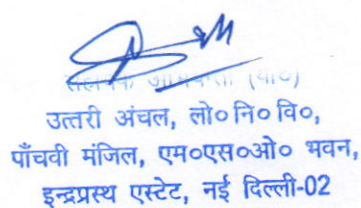 सहायक अभियन्ता (या०)
उत्तरी अंचल, लो०नि०वि०,
पाँचवी मंजिल, एम०एस०ओ० भवन,
इन्द्रप्रस्थ एस्टेट, नई दिल्ली-02